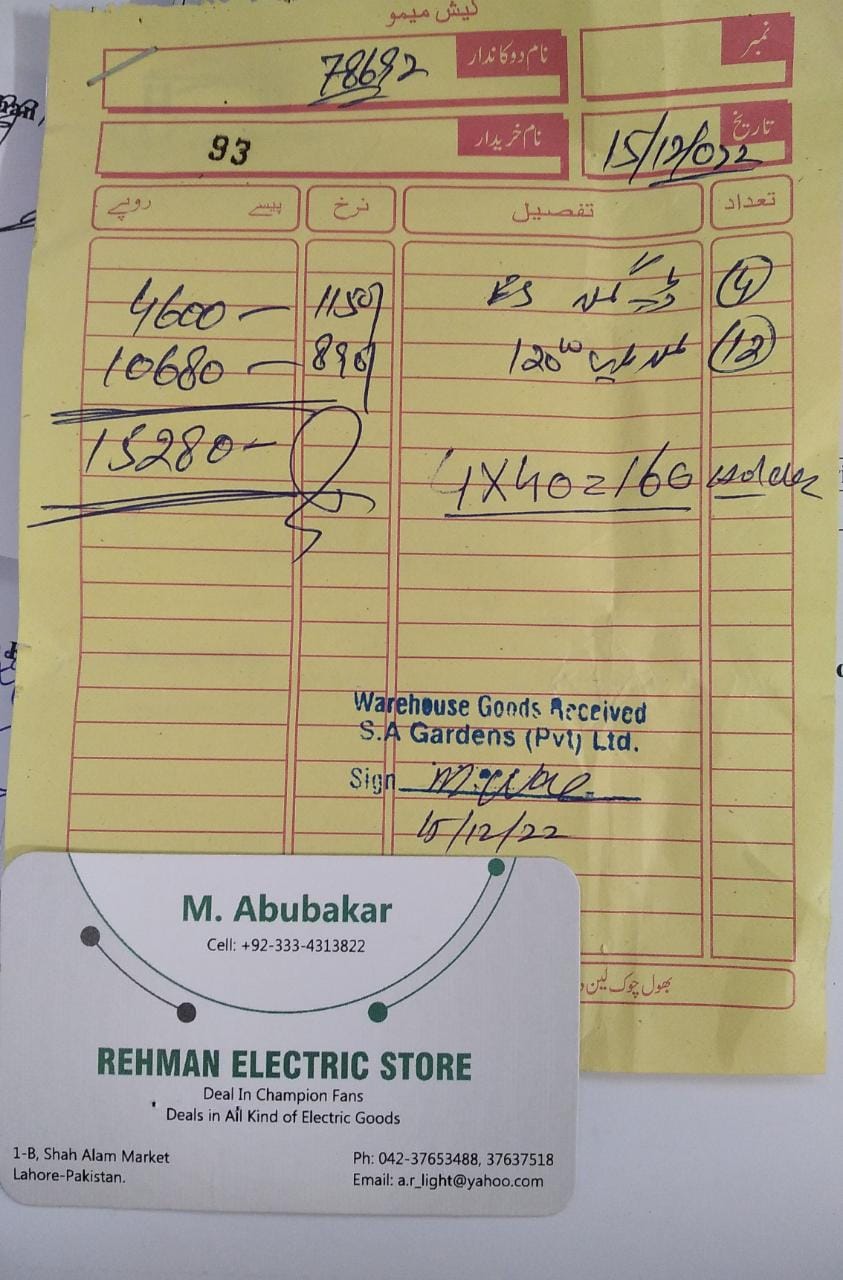 کیش میمو
نمبر
نام دوکاندار 78692
تاریخ 15/12/022
نام خریدار 93
تعداد تفصیل نرخ پیسے روپے
4 1150 4600
12 120W 890 10680
15280
4X40=160 Holder
Warehouse Goods Received
S.A Gardens (Pvt) Ltd.
Sign
15/12/22
بھول چوک لین
M. Abubakar
Cell: +92-333-4313822
REHMAN ELECTRIC STORE
Deal In Champion Fans
Deals in All Kind of Electric Goods
1-B, Shah Alam Market
Lahore-Pakistan.
Ph: 042-37653488, 37637518
Email: a.r_light@yahoo.com